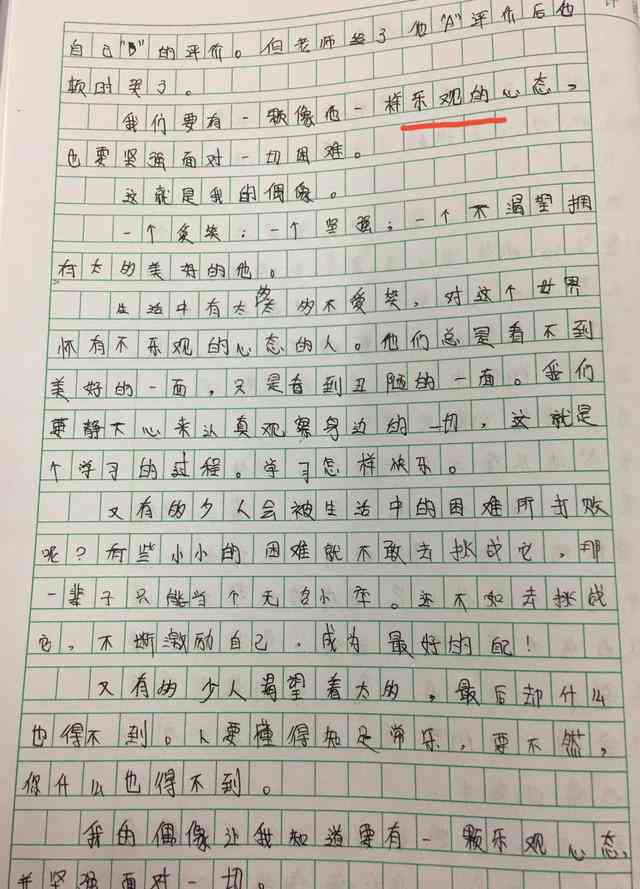 自己"B"的评价。但老师给了他"A"评价后他
顿时哭了。
我们要有一颗像他一样乐观的心态,
也要坚强面对一切困难。
这就是我的偶像。
一个爱笑;一个坚强;一个不渴望拥
有太多美好的他。
生活中有太多的不爱笑,对这个世界
怀有不乐观的心态的人。他们总是看不到
美好的一面,又是看到丑陋的一面。我们
要静下心来认真观察身边的一切,这就是
个学习的过程。学习怎样快乐。
又有多少人会被生活中的困难所打败
呢?有些小小的困难就不敢去挑战它,那
一辈子只能当个无名小卒。还不如去挑战
它,不断激励自己,成为最好的自己!
又有多少人渴望着太多,最后却什么
也得不到。人要懂得知足常乐,要不然,
你什么也得不到。
我的偶像让我知道要有一颗乐观心态,
并坚强面对一切。